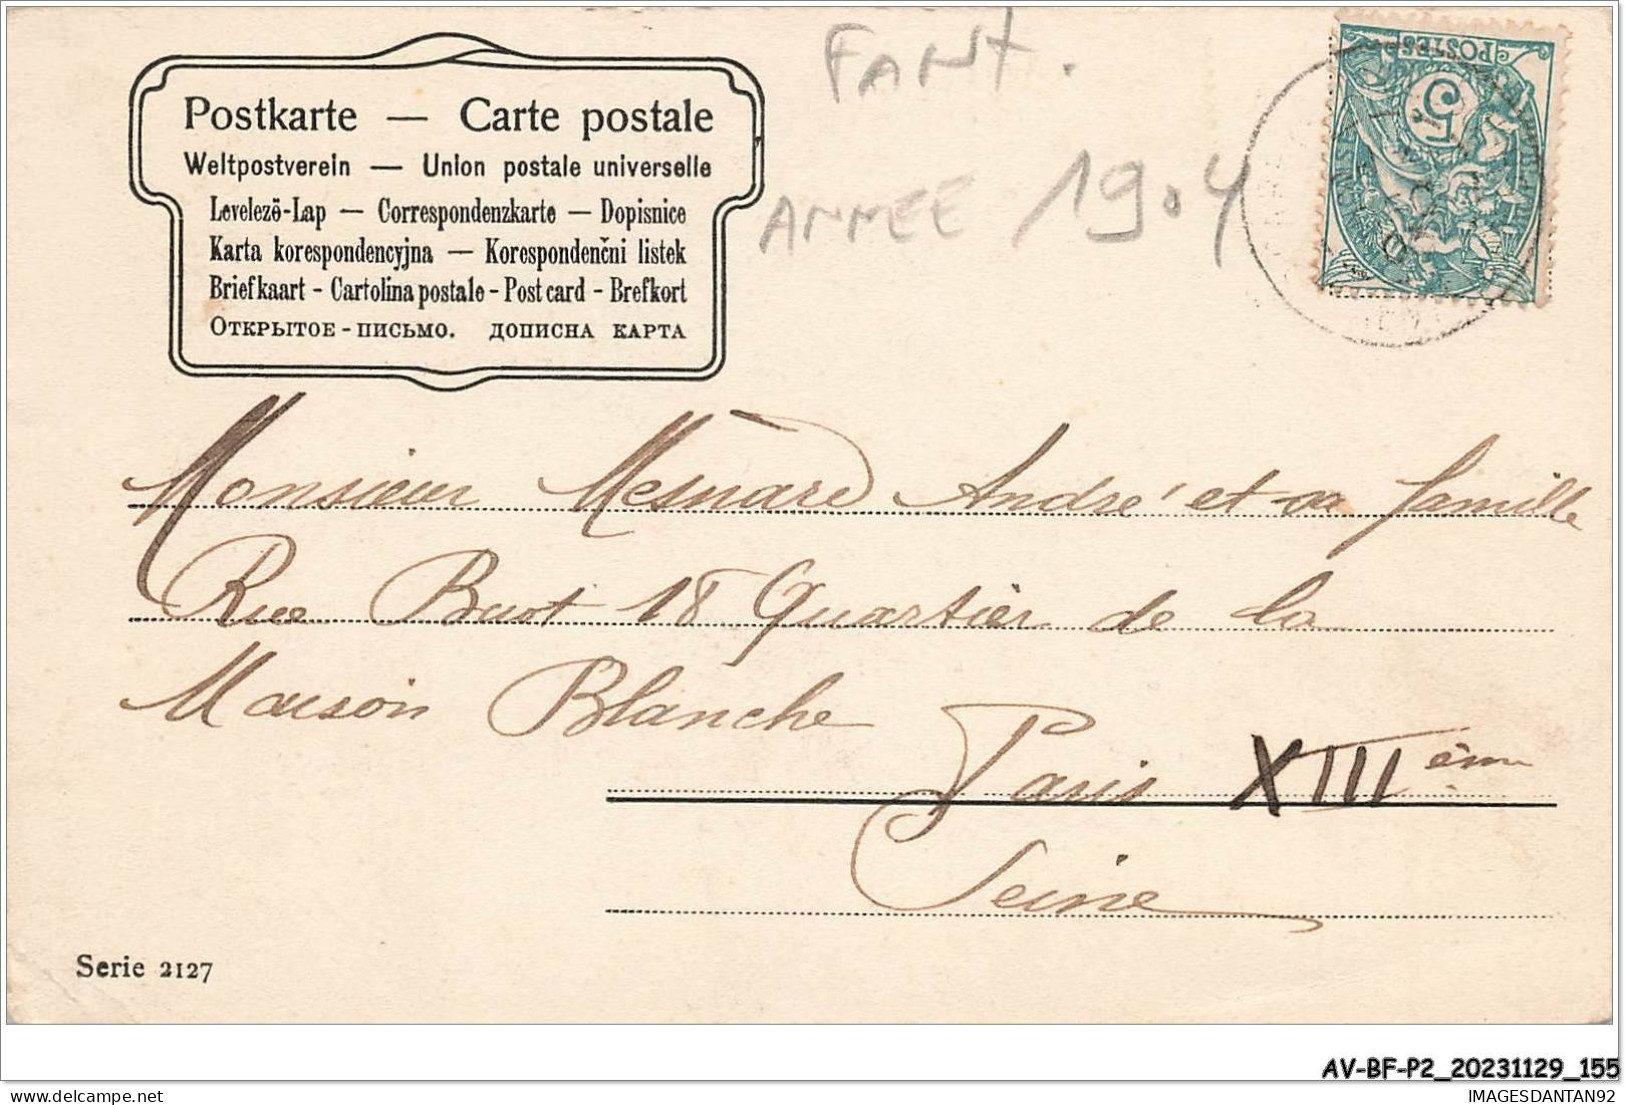 FANT.
ANNEE 1904
POSTES
5
Postkarte — Carte postale
Weltpostverein — Union postale universelle
Levelezö-Lap — Correspondenzkarte — Dopisnice
Karta korespondencyjna — Korespondenčni listek
Briefkaart - Cartolina postale - Post card - Brefkort
Открытое - письмо. дописна карта
Monsieur Mesnard André et sa famille
Rue Buot 18 Quartier de la
Maison Blanche
Paris XIIIème
Seine
Serie 2127
AV-BF-P2_20231129_155
IMAGESDANTAN92